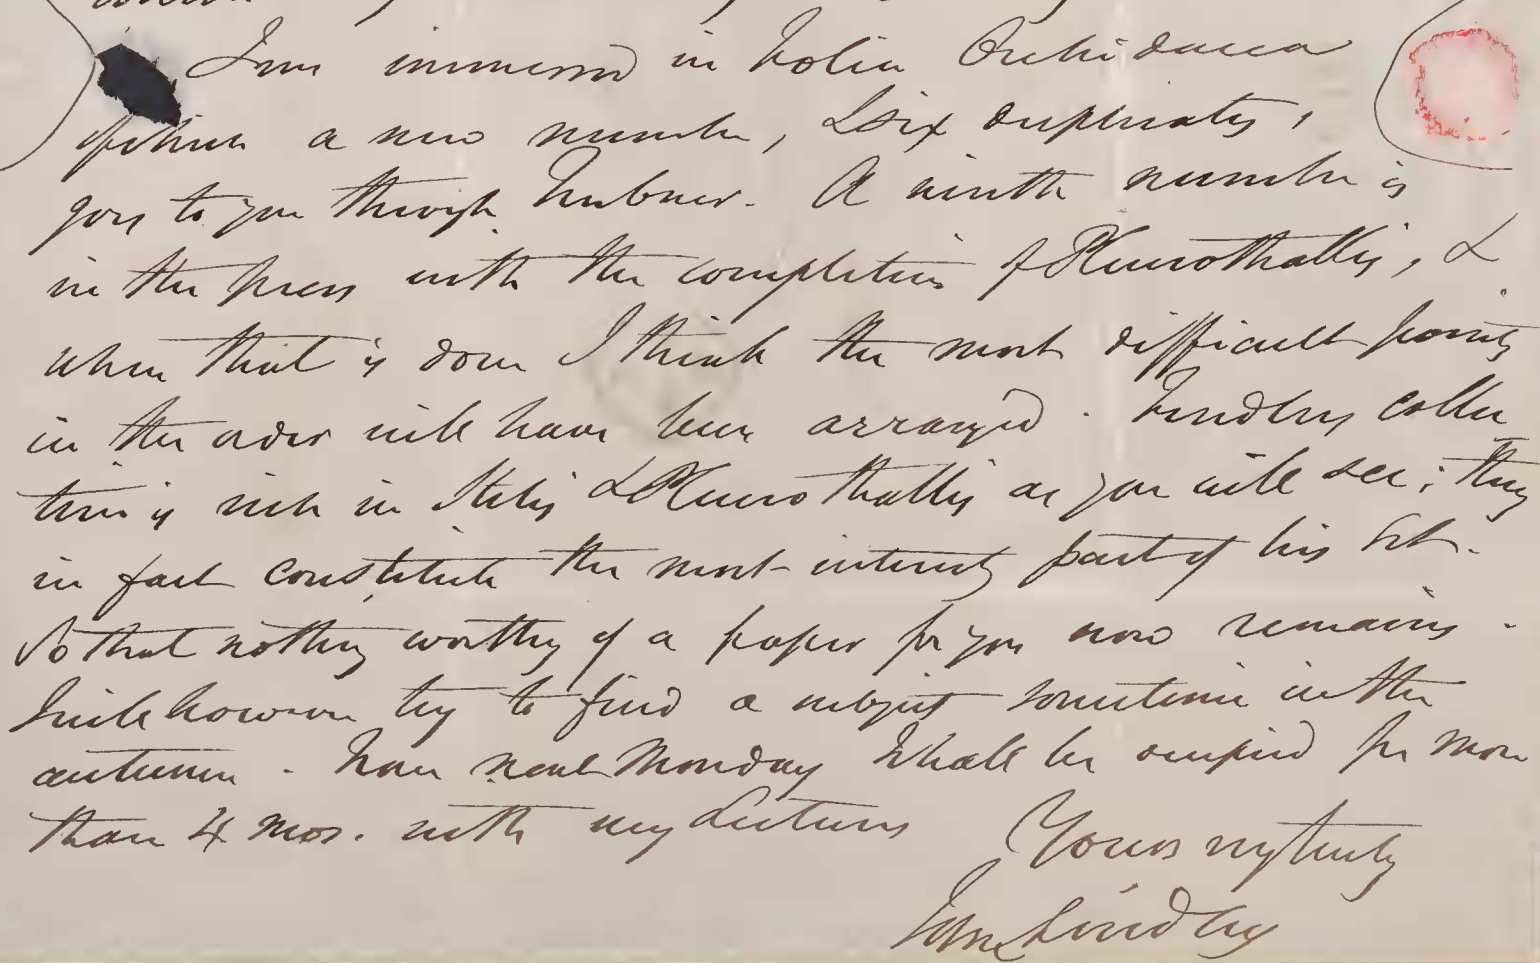 I am immersed in Folia Orchidacea
of which a new number, & six duplicates,
goes to you through Trubner. A ninth number is
in the press with the completion of Pleurothallis, &
when that is done I think the most difficult points
in the order will have been arranged. Fendlers collec
tion is rich in Stelis & Pleurothallis as you will see; they
in fact constitute the most interesting part of his Set.
So that nothing worthy of a paper for you now remains.
I will however try to find a subject sometime in the
autumn. From next Monday I shall be occupied for more
than 4 mos. with my Lectures
Yours very truly
John Lindley